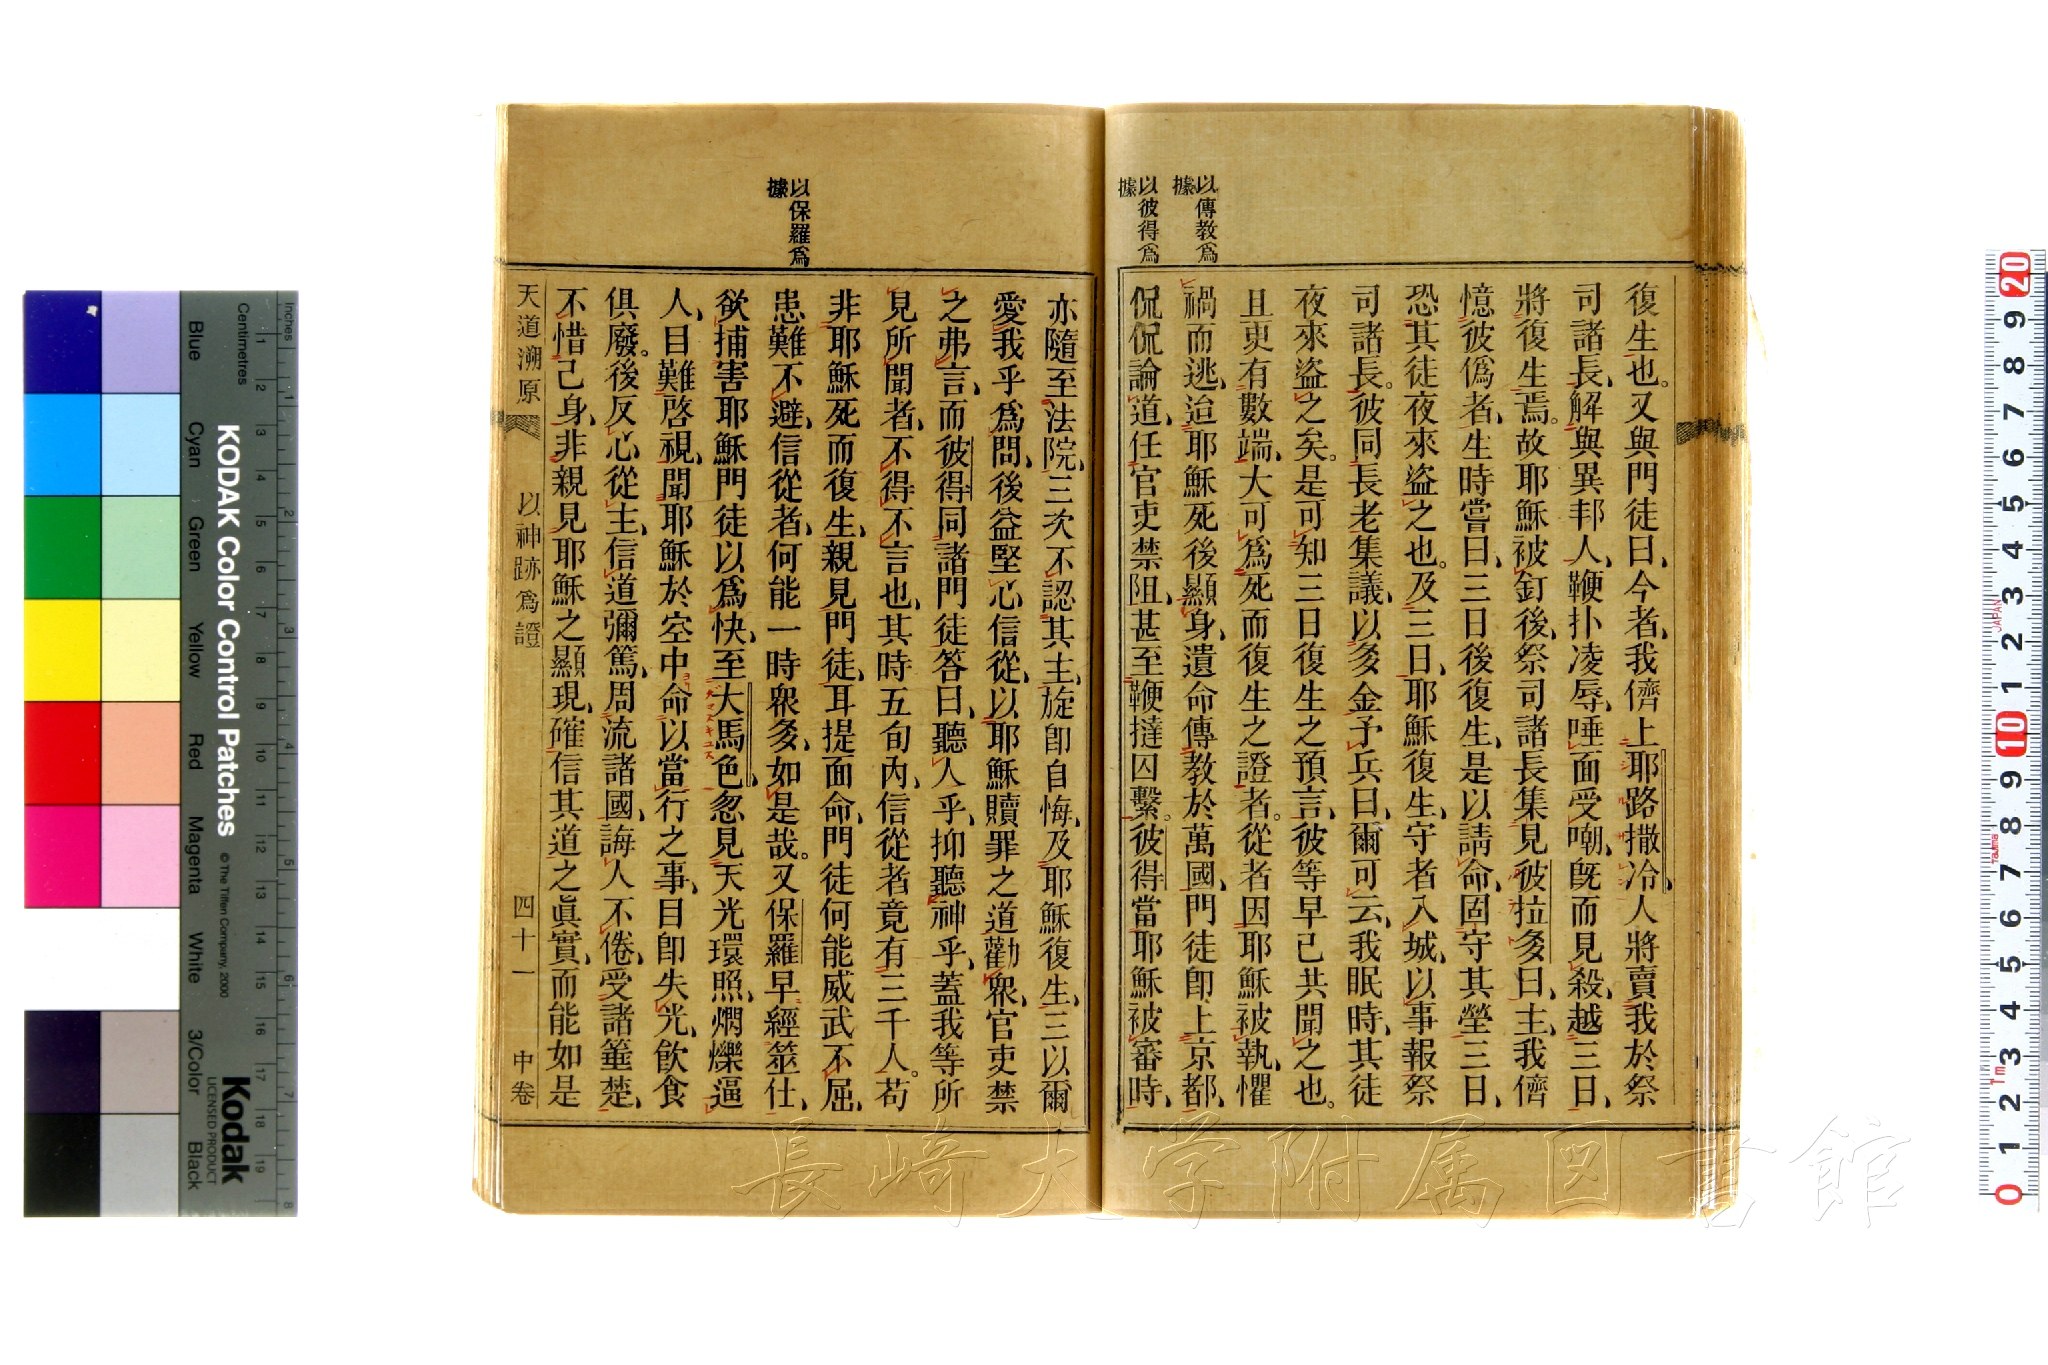 以傳教爲
據
以彼得爲
據
復生也。又與門徒曰、今者、我儕上耶路撒冷、人將賣我於祭
司諸長、解與異邦人、鞭扑凌辱、唾面受嘲、旣而見殺、越三日、
將復生焉。故耶穌被釘後、祭司諸長集見彼拉多曰、主、我儕
憶彼僞者、生時嘗曰、三日後復生、是以請命、固守其塋三日、
恐其徒夜來盜之也。及三日、耶穌復生、守者入城、以事報祭
司諸長。彼同長老集議、以多金予兵曰、爾可云、我眠時、其徒
夜來盜之矣。是可知三日復生之預言、彼等早已共聞之也。
且更有數端、大可爲死而復生之證者。從者因耶穌被執、懼
禍而逃、迨耶穌死後顯身、遺命傳教於萬國、門徒卽上京都、
侃侃論道、任官吏禁阻、甚至鞭撻囚繫。彼得當耶穌被審時、
以保羅爲
據
亦隨至法院、三次不認其主、旋卽自悔、及耶穌復生、三以爾
愛我乎爲問、後益堅心信從、以耶穌贖罪之道勸衆、官吏禁
之弗言、而彼得同諸門徒答曰、聽人乎、抑聽神乎、蓋我等所
見所聞者、不得不言也、其時五旬內、信從者竟有三千人。苟
非耶穌死而復生、親見門徒、耳提面命、門徒何能威武不屈、
患難不避、信從者、何能一時衆多、如是哉。又保羅早經筮仕、
欲捕害耶穌門徒以爲快、至大馬色、忽見天光環照、燜爍逼
人、目難啓視、聞耶穌於空中命以當行之事、目卽失光、飮食
俱廢。後反心從主、信道彌篤、周流諸國、誨人不倦、受諸箠楚、
不惜己身、非親見耶穌之顯現、確信其道之眞實、而能如是
天道溯原 以神跡爲證 四十一 中卷
長崎大学附属図書館
KODAK Color Control Patches
©The Tiffen Company, 2000
Kodak
LICENSED PRODUCT
Inches
Centimetres
Blue
Cyan
Green
Yellow
Red
Magenta
White
3/Color
Black
JAPAN
Tajima